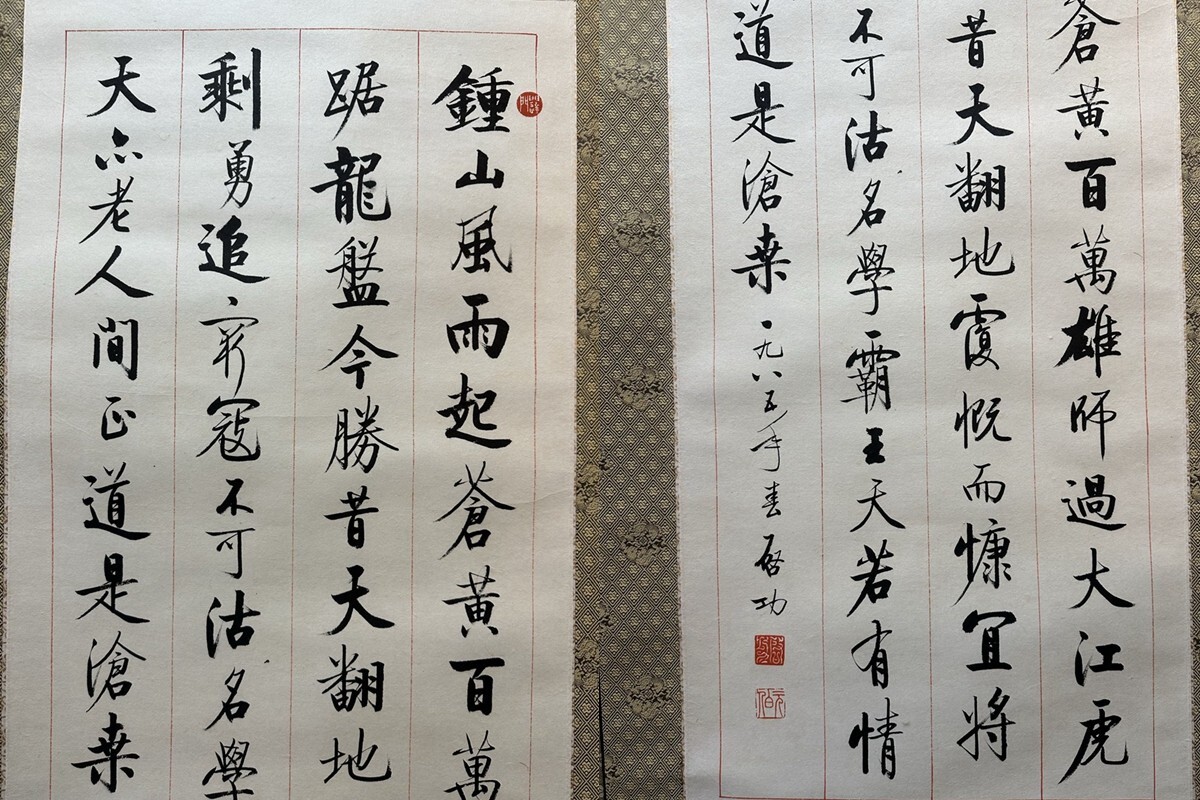 鍾山風雨起蒼黃百萬
踞龍盤今勝昔天翻地
剩勇追窮寇不可沽名學
天亦老人間正道是滄桑
蒼黃百萬雄師過大江虎
昔天翻地覆慨而慷宜將
不可沽名學霸王天若有情
道是滄桑 一九八五年春 啟功